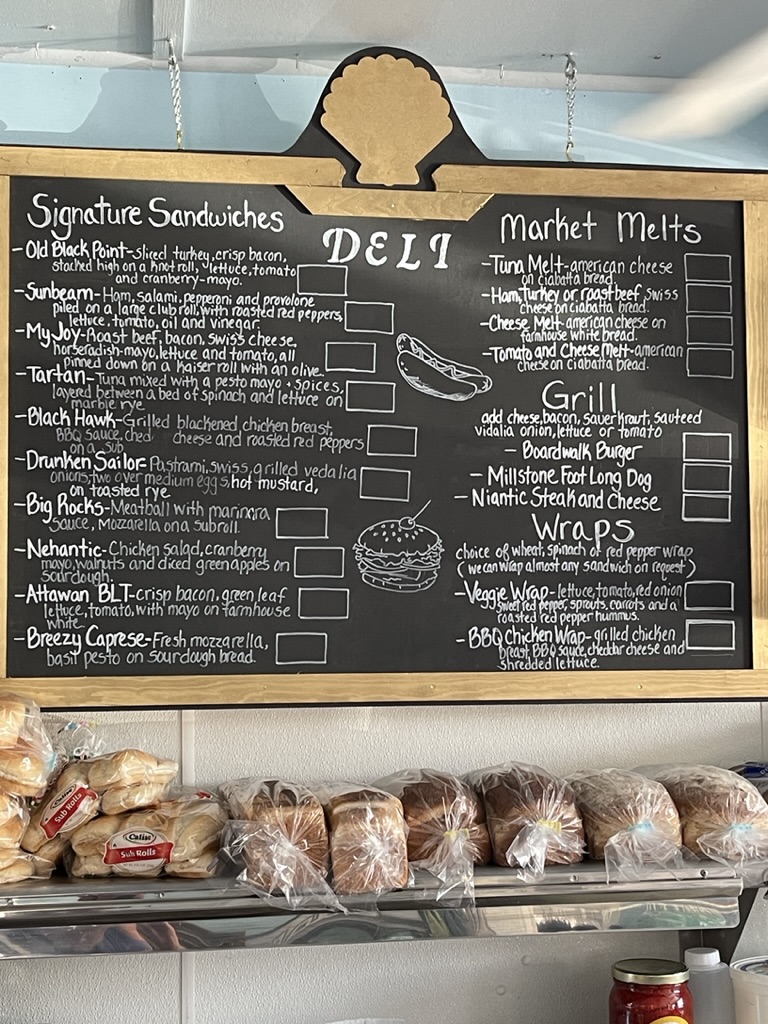 Signature Sandwiches
- Old Black Point - sliced turkey, crisp bacon,
stacked high on a knot roll, lettuce, tomato
and cranberry-mayo.
- Sunbeam - Ham, salami, pepperoni and provolone
piled on a large club roll, with roasted red peppers,
lettuce, tomato, oil and vinegar.
- My Joy - Roast beef, bacon, swiss cheese,
horseradish-mayo, lettuce and tomato, all
pinned down on a Kaiser roll with an olive.
- Tartan - Tuna mixed with a pesto mayo + spices,
layered between a bed of spinach and lettuce on
marble rye
- Black Hawk - Grilled blackened, chicken breast,
BBQ sauce, ched cheese and roasted red peppers
on a sub
- Drunken Sailor - Pastrami, swiss, grilled vedalia
onions, two over medium eggs, hot mustard,
on toasted rye
- Big Rocks - Meatball with marinara
sauce, Mozzarella on a subroll.
- Nehantic - Chicken salad, cranberry
mayo, walnuts and diced green apples on
sourdough.
- Attawan BLT - crisp bacon, green leaf
lettuce, tomato, with mayo on farmhouse
white.
- Breezy Caprese - Fresh mozzarella,
basil pesto on sourdough bread.
DELI
Market Melts
- Tuna Melt - american cheese
on ciabatta bread.
- Ham, Turkey or roast beef, swiss
cheese on ciabatta bread.
- Cheese Melt - american cheese on
farmhouse white bread.
- Tomato and Cheese Melt - american
cheese on ciabatta bread.
Grill
add cheese, bacon, sauerkraut, sauteed
vidalia onion, lettuce or tomato
- Boardwalk Burger
- Millstone Foot Long Dog
- Niantic Steak and Cheese
Wraps
choice of wheat, spinach or red pepper wrap
(we can wrap almost any sandwich on request)
- Veggie Wrap - lettuce, tomato, red onion
sweet red pepper, sprouts, carrots and a
roasted red pepper hummus.
- BBQ Chicken Wrap - grilled chicken
breast, BBQ sauce, cheddar cheese and
shredded lettuce.
Sub Rolls
Calise
Sub Rolls